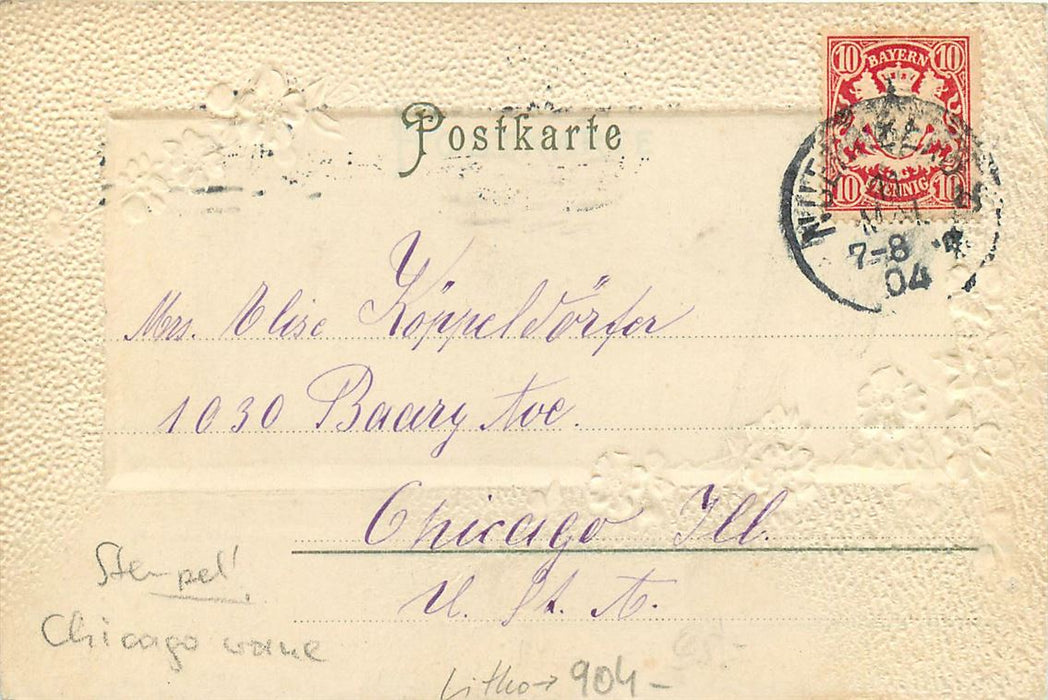 10 BAYERN 10
10 PFENNIG 10
Postkarte
7-8
04
Mrs. Elise Köppeldörfer
1030 Baary Ave.
Chicago Ill.
U. St. A.
Stempel!
Chicago vorne
Litho → 904 -